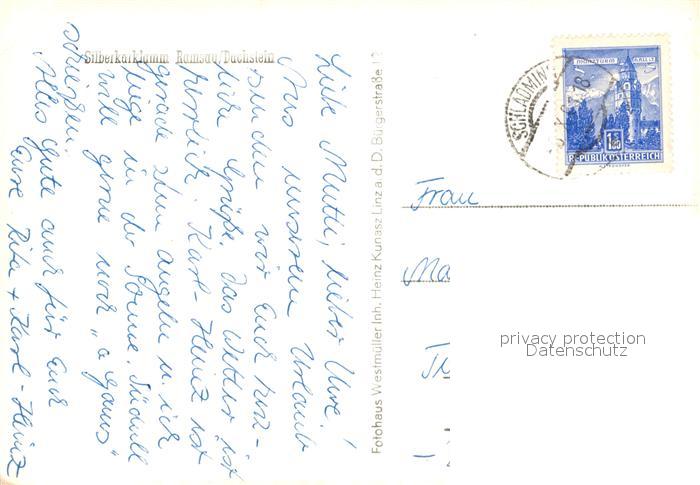 Silberkarklamm Ramsau/Dachstein
Liebe Mutti, lieber Uwe!
Aus unserem Urlaub
senden wir Euch herz-
liche Grüße. Das Wetter ist
herrlich. Karl-Heinz ist
gerade zum angeln u. ich
liege in der Sonne.
will gerne noch "a Gams"
schießen.
Alles Gute auch für Euch
Eure Rita + Karl-Heinz
Fotohaus Westmüller Inh. Heinz Kunasz Linz a. d. D. Bürgerstraße 12
SCHLADMING
MÜNZTURM HALL I. T.
S 1.80
REPUBLIK ÖSTERREICH
Frau
Ma
privacy protection
Datenschutz